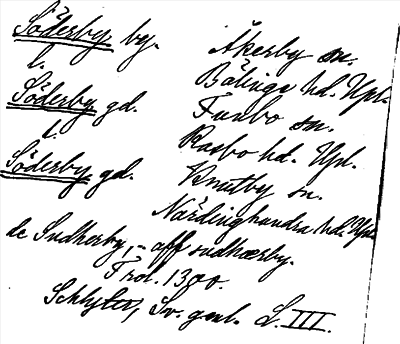 Söderby by. Åkerby sn.
l. Bälinge hd. Upl.
Söderby gd. Funbo sn.
l. Rasbo hd. Upl.
Söderby gd. Knutby sn.
Närdinghundra hd. Upl.
de Sudherby, - aff sudhærby.
Frol. 1300.
Schlyter, Sv. gml. L. III.